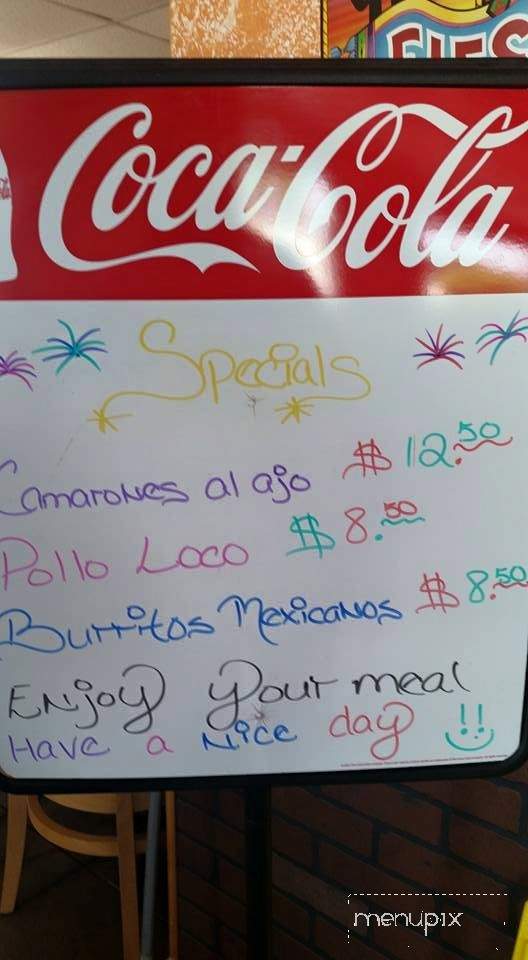 FIES
Coca-Cola
Specials
Camarones al ajo $12.50
Pollo Loco $8.50
Burritos Mexicanos $8.50
Enjoy your meal
Have a Nice day
menupix